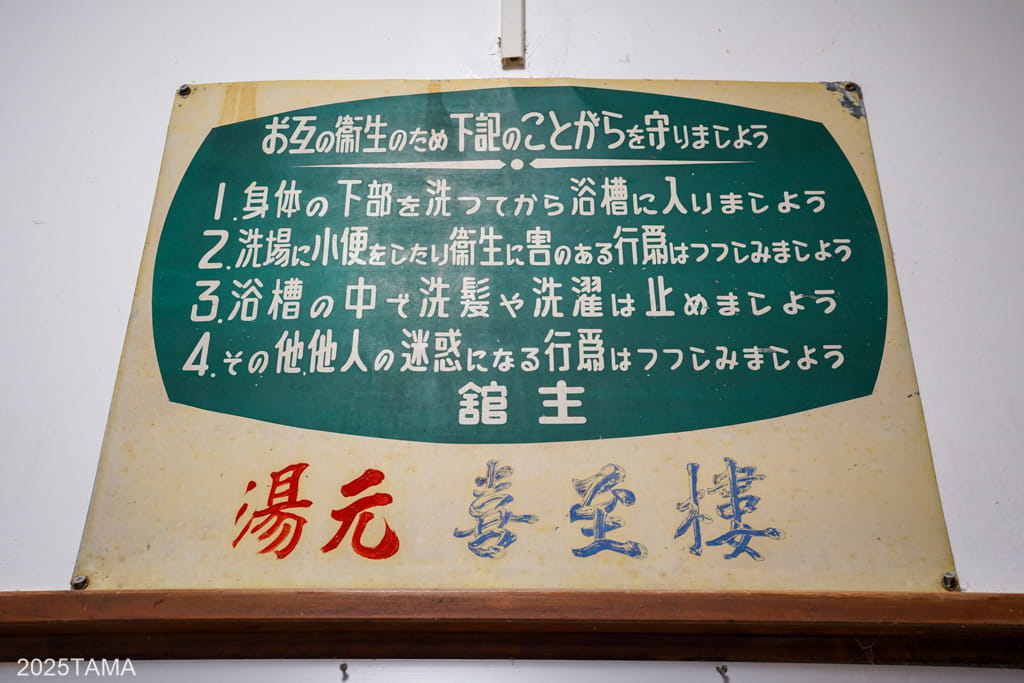 お互の衛生のため下記のことがらを守りましよう
1.身体の下部を洗つてから浴槽に入りましよう
2.洗場に小便をしたり衛生に害のある行爲はつつしみましよう
3.浴槽の中で洗髪や洗濯は止めましよう
4.その他他人の迷惑になる行爲はつつしみましよう
舘主
湯元 喜至樓
2025TAMA